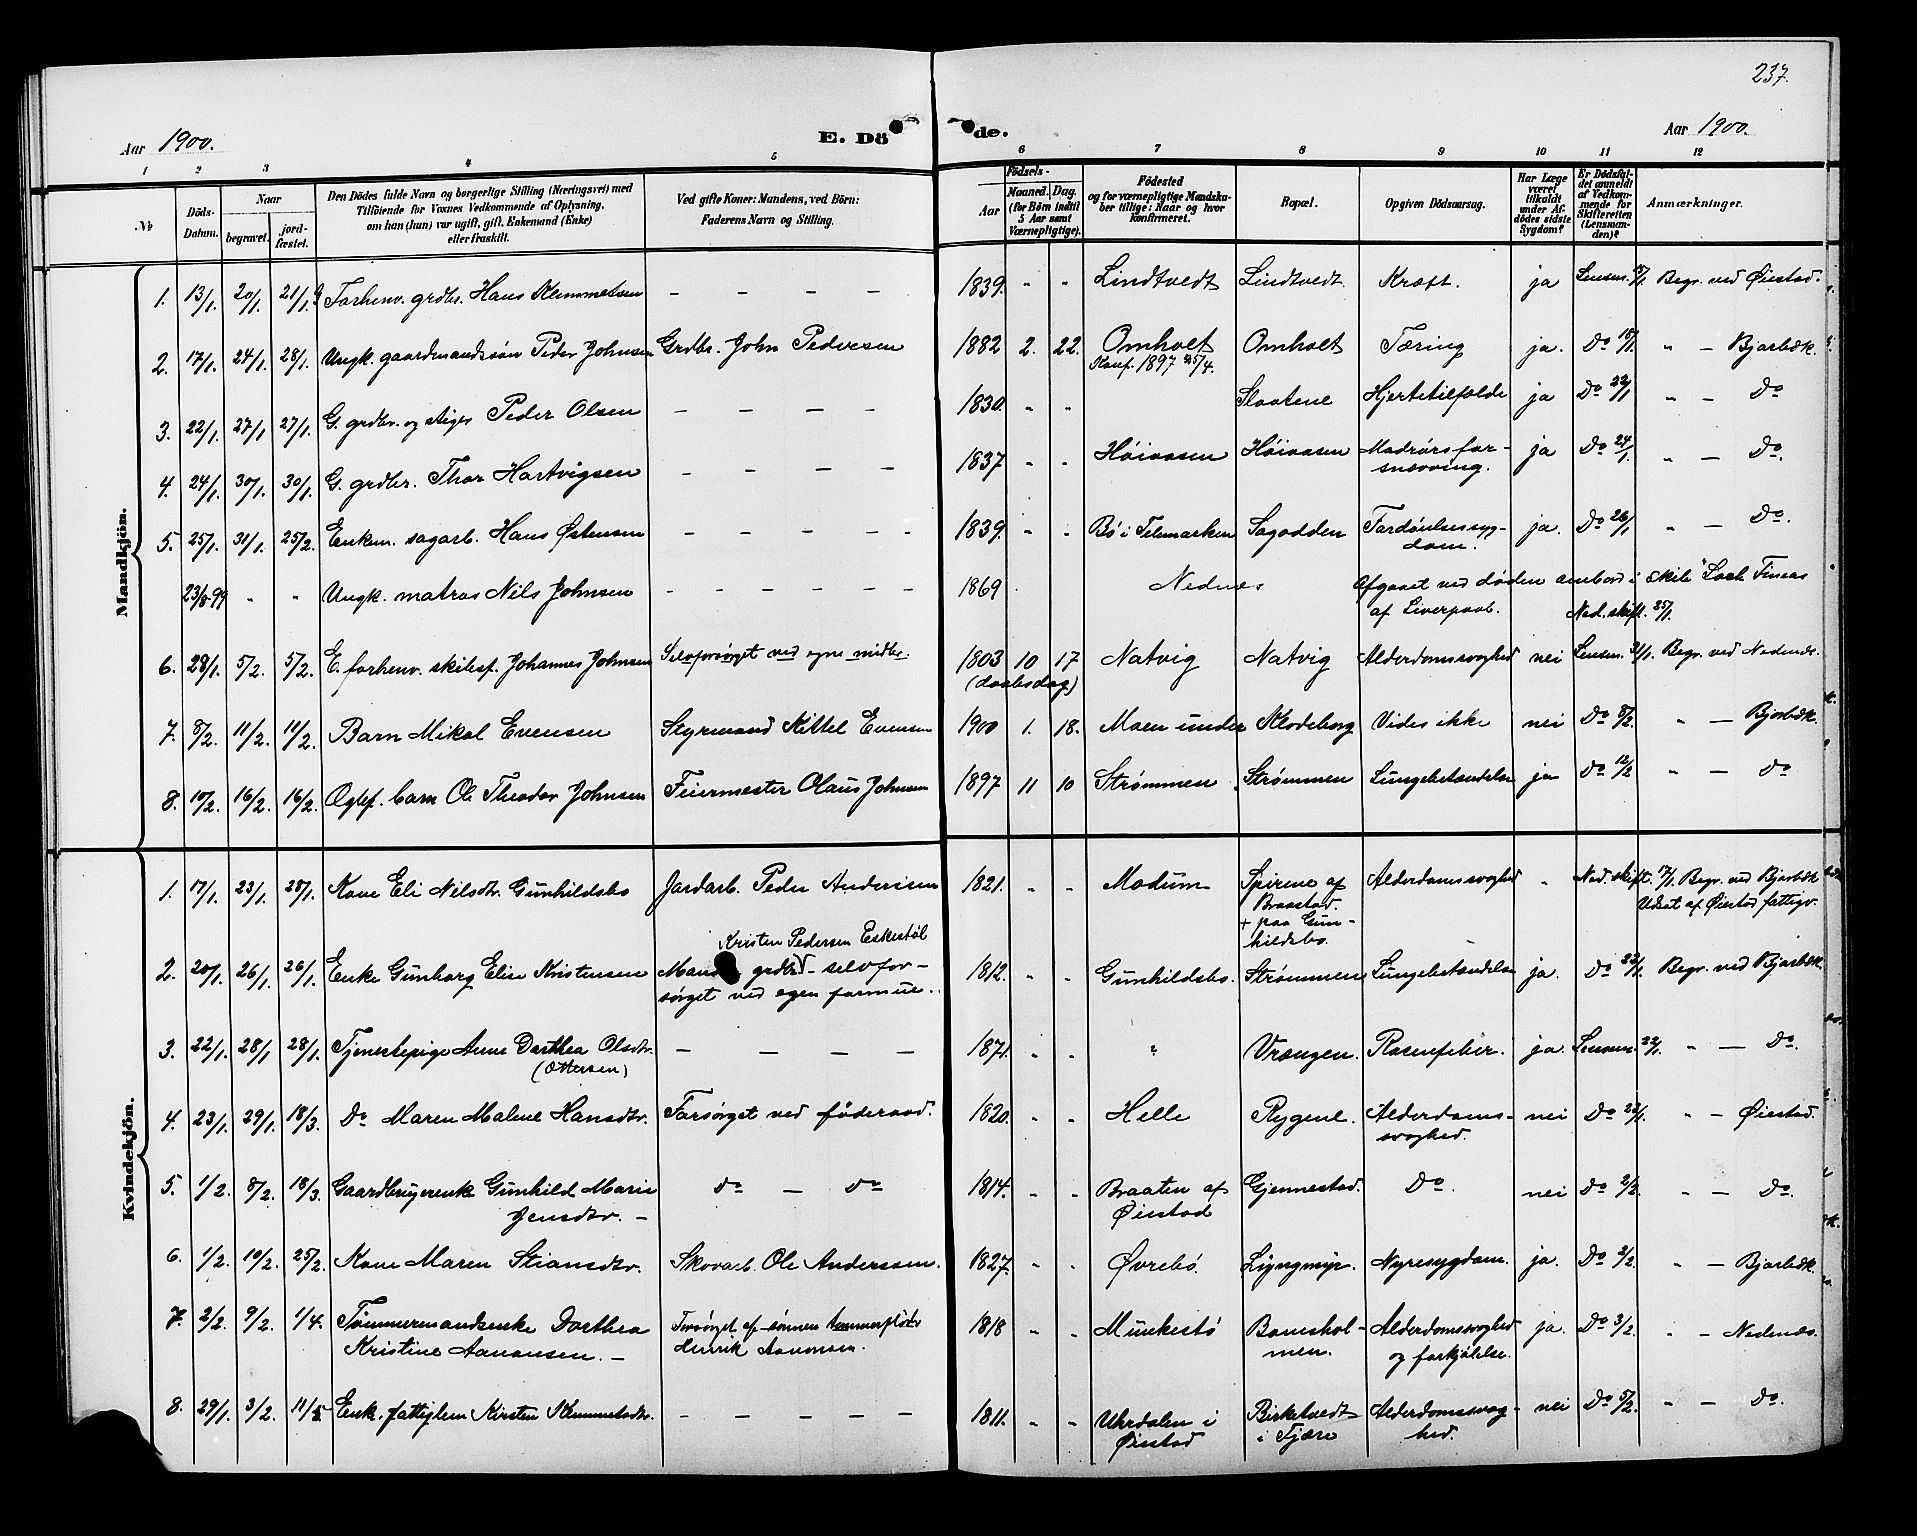 237.
Aar 1900. E. Dö de. Aar 1900.
1 2 3 4 5 6 7 8 9 10 11 12
№
Döds-Datum.
Naar
begravet.
jord-fæstet.
Den Dödes fulde Navn og borgerlige Stilling (Næringsvei) med
Tilföiende for Voxnes Vedkommende af Oplysning,
om han (hun) var ugift, gift, Enkemand (Enke)
eller fraskilt.
Ved gifte Koner: Mandens, ved Börn:
Faderens Navn og Stilling.
Födsels-
Aar
Maaned. Dag.
(for Börn indtil
5 Aar samt
Værnepligtige).
Födested
og for værnepligtige Mandska-
ber tillige: Naar og hvor
konfirmeret.
Bopæl.
Opgiven Dödsaarsag.
Har Læge
været
tilkaldt
under Af-
dödes sidste
Sygdom?
Er Dödsfal-
det anmeldt
af Vedkom-
mende for
Skifteretten
(Lensman-
den)?
Anmærkninger.
Mandkjön.
1. 13/1. 20/1 21/1 Forhenv. grdbr. Hans Klemmetsen – – – – 1839. " " Lindtvedt Lindtvedt. Kræft. ja Lensm. Begr. ved Øiestad.
2. 17/1. 24/1. 28/1. Ungk. gaardmandssøn Peder Johnsen Grdbr. John Pedersen 1882 2. 22. Omholt Omholt Tæring ja. Do 18/1. " – Bjorbæk.
Konf. 1897 25/4.
3. 22/1. 27/1 27/1. G. grdbr. og stiger Peder Olsen – – – – 1830. " " Slaatene Hjertetilfælde ja Do 22/1 " – Do
4. 24/1. 30/1. 30/1. G. grdbr. Thor Hartvigsen – – – – 1837 " " Høiaasen Høiaasen Madrørsfor-
snævring. ja Do 24/1. " – Do.
5. 25/1. 31/1. 25/2. Enkem. sagarb. Hans Østensen – – – – 1839. " " Bø i Telemarken Sagodden Fordøielsessyg-
dom. ja. Do 26/1 " – Do.
23/8 99 " " Ungk. matros Nils Johnsen – – – – – 1869 Nednæs Afgaaet ved døden ombord i skib "Loch Finnas
af Liverpool. Ned. skift. 25/1
6. 28/1. 5/2. 5/2. E. forhenv. skibsf. Johannes Johnsen Selvforsørget ved egne midler. 1803 10 17 Natvig Natvig Alderdomssvaghed nei Lensm. 31/1. Begr. ved Nedenæs.
(daabsdag)
7. 8/2. 11/2. 11/2. Barn Mikal Evensen Styrmand Kittel Evensen 1900 1. 18. Moen under Klodeborg Vides ikke nei Do 8/2. " – Bjorbæk.
8. 10/2. 16/2. 16/2. Ægtef. barn Ole Theodor Johnsen Feiermester Olaus Johnsen 1897 11 10 Strømmen Strømmen Lungebetændelse ja Do 12/2 " – Do
Kvindekjön.
1. 17/1. 23/1. 28/1. Kone Eli Nilsdtr. Gunhildsbo Jordarb. Peder Andersen 1821. " " Modum Spirene af
Braastad.
+ paa Gun-
hildsbo. Alderdomssvaghed " Ned. skift. 17/1. Begr. ved Bjorbæk
Udsat af Øiestad fattigv.
2. 20/1. 26/1. 26/1. Enke Gunborg Elise Kristensen Kristen Pedersen Eskestøl
Mand grdbr. – selvfor-
sørget ved egen formue. 1812. " " Gunhildsbo. Strømmen Lungebetændelse ja. Do 23/1. Begr. ved Bjorbæk
3. 22/1. 28/1 28/1. Tjenestepige Anne Dorthea Olsdtr.
(Ottersen) – – – – 1871. " " " Vrængen. Rosenfeber. ja. Lensm. 22/1. " – Do.
4. 23/1. 29/1. 18/3. Do Maren Malene Hansdtr. Forsørget ved föderaad. 1820. " " Helle Rygene. Alderdoms-
svaghed. nei Do 23/1. " – Øiestad.
5. 1/2. 8/2. 18/3. Gaardbrugerenk. Gunhild Marie
Jensdtr. – Do – Do 1814. " " Braaten af
Øiestad Gjennestad. Do. nei Do 2/2. " – Do.
6. 1/2. 10/2. 25/2. Kone Maren Stiansdtr. Skovarb. Ole Anderssen. 1827. " " Øvrebø. Lyngmyr. Nyresygdom. ja. Do 2/2. " – Bjorbæk.
7. 2/2. 9/2. 1/4. Tømmermandsenke Dorthea
Kristine Aanonsen. – Forsørget af sønnen tømmerfløder
Henrik Aanonsen. 1818 " " Munkestø Bomshol-
men. Alderdomssvaghed
og forkjølelse. ja. Do 3/2. " – Nedenæs.
8. 29/1. 3/2. 11/3 Enk. fattiglem Kirsten Klemmetsdtr. – – – – 1811. " " Uhrdalen i
Øiestad Birketvedt
i Fjære Alderdomssvag-
hed. nei Do 5/2. " – Do.